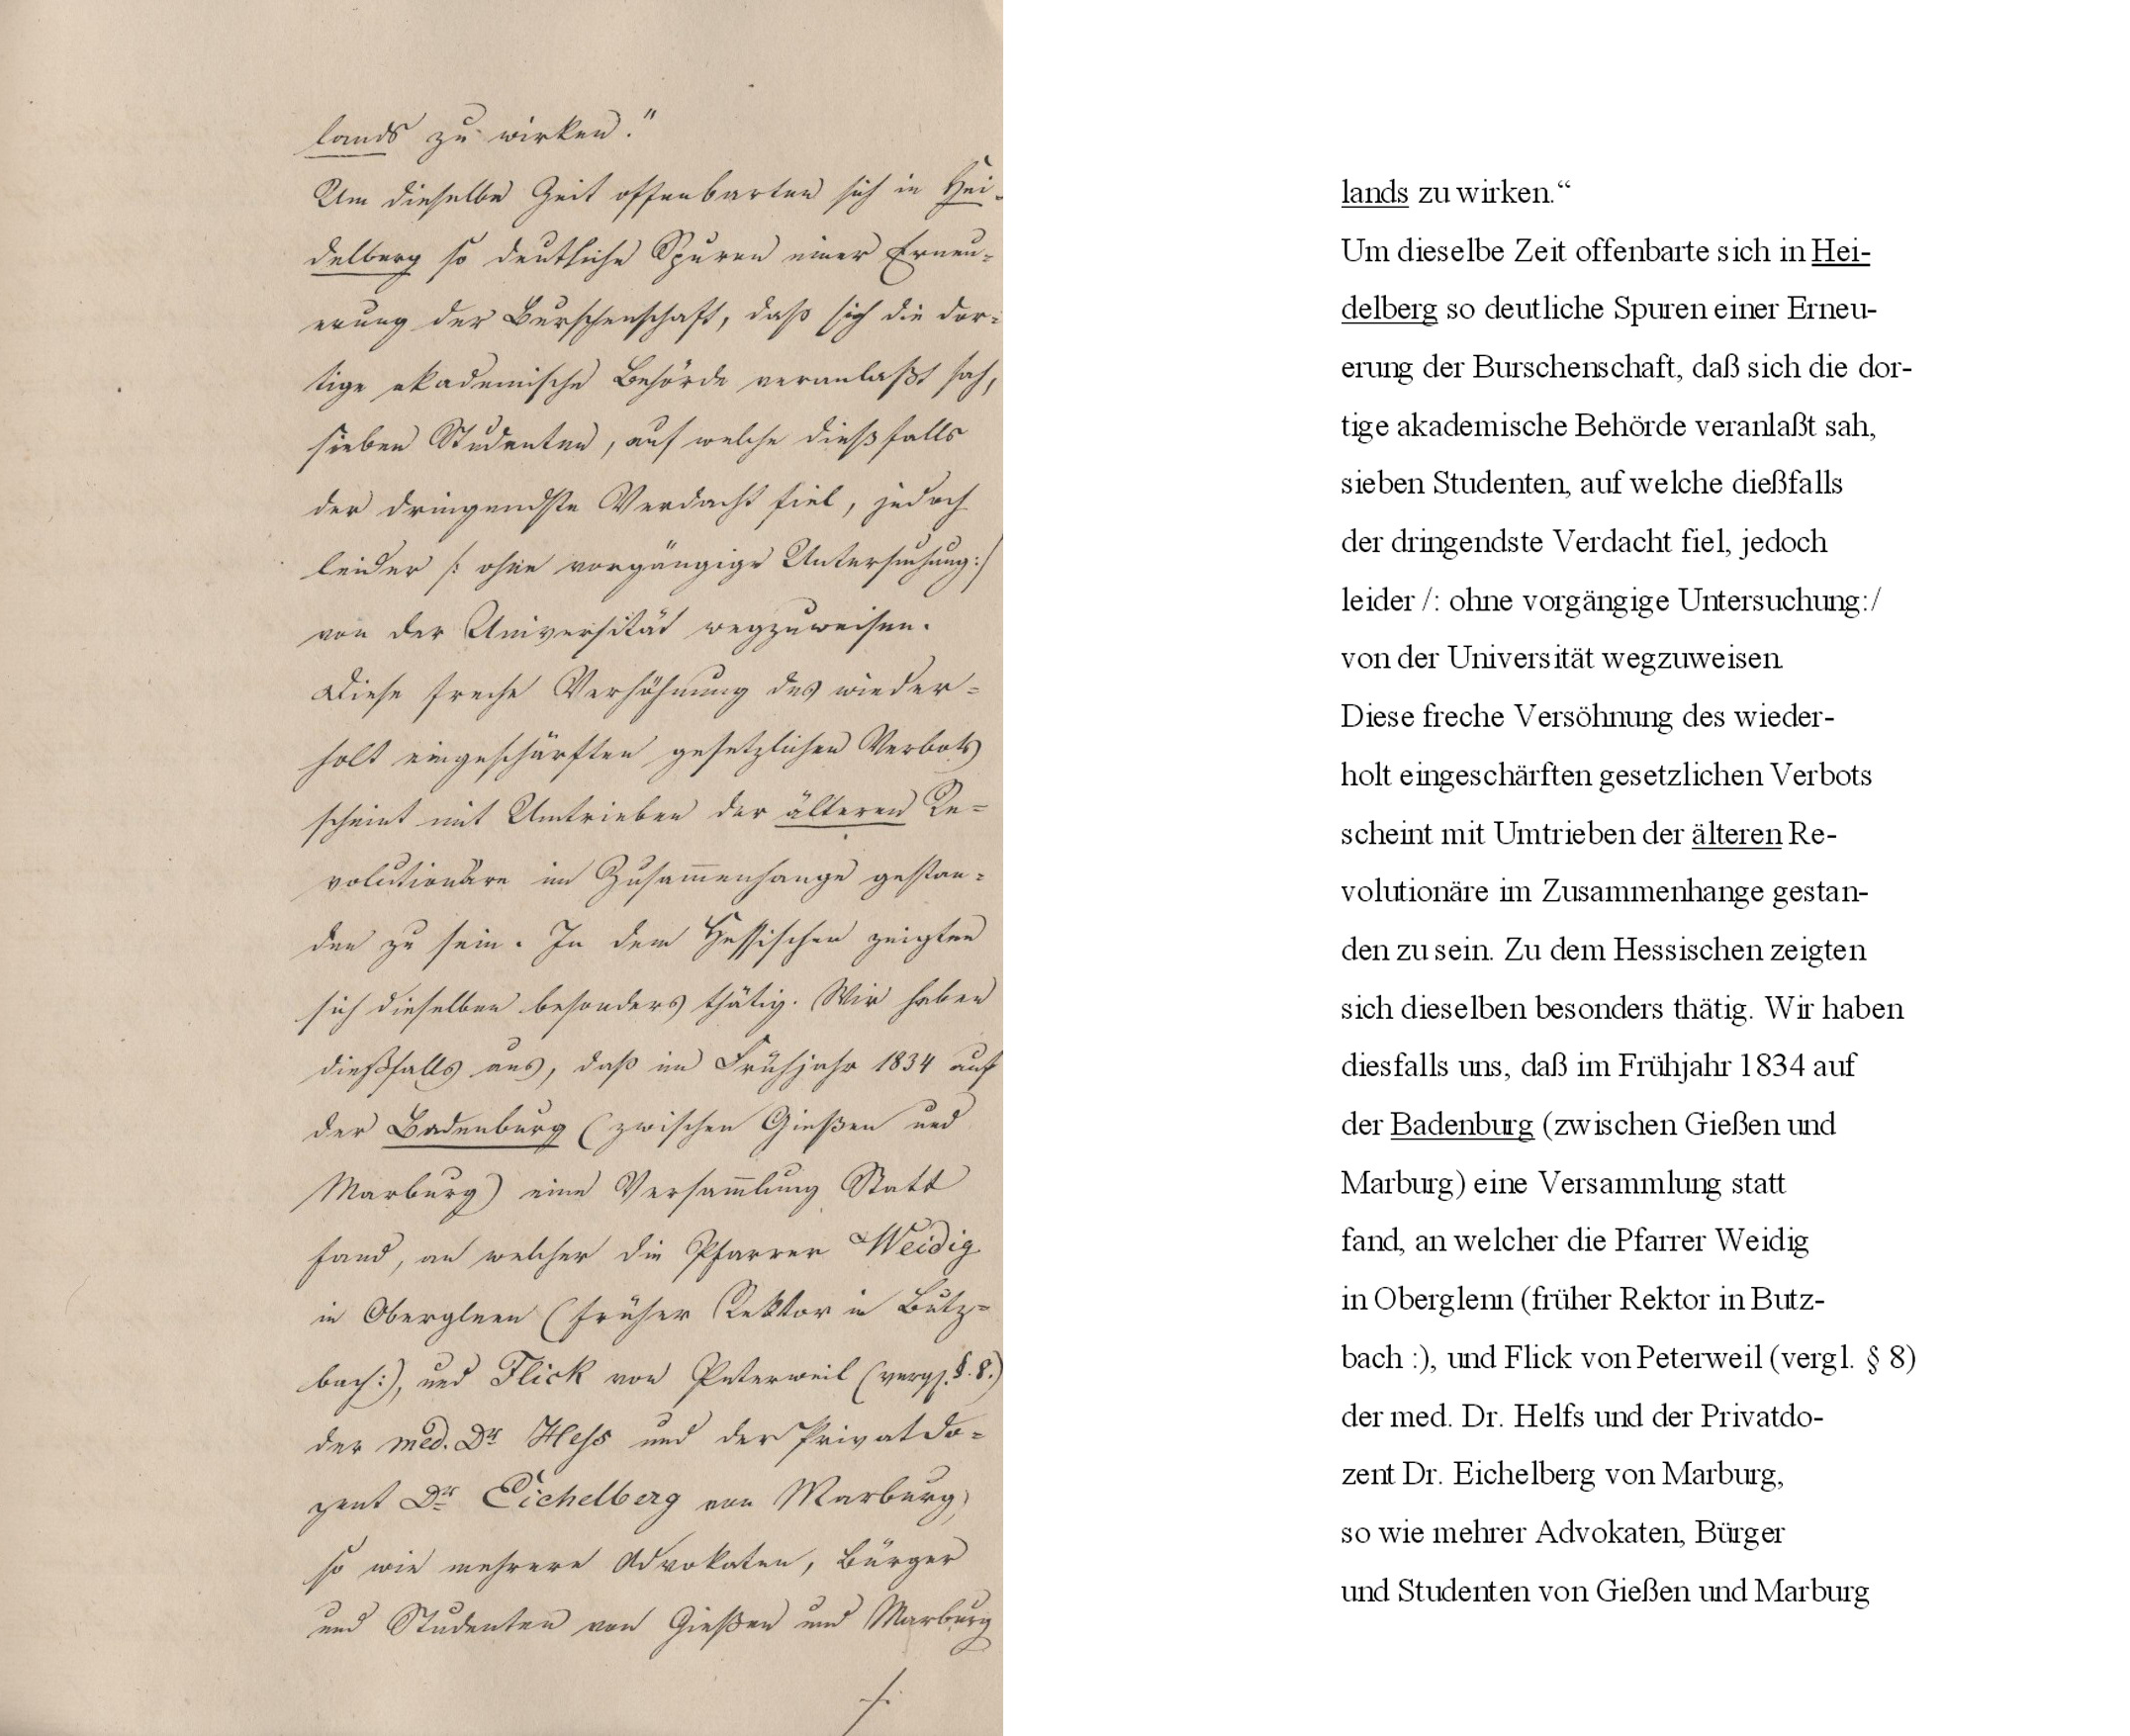 lands zu wirken."
Um dieselbe Zeit offenbarten sich in Hei-
delberg so deutliche Spuren einer Erneu-
erung der Burschenschaft, daß sich die dor-
tige akademische Behörde veranlaßt sah,
sieben Studenten, auf welche dießfalls
der dringendste Verdacht fiel, jedoch
leider /: ohne vorgängige Untersuchung:/
von der Universität wegzuweisen.
Diese freche Verhöhnung des wieder-
holt eingeschärften gesetzlichen Verbots
scheint mit Umtrieben der älteren Re-
volutionäre im Zusammenhange gestan-
den zu sein. In dem Hessischen zeigten
sich dieselben besonders thätig. Wir haben
dießfalls aus, daß im Frühjahr 1834 auf
der Badenburg (zwischen Gießen und
Marburg) eine Versammlung Statt
fand, an welcher die Pfarrer Weidig
in Obergleen (früher Rektor in Butz-
bach:), und Flick von Peterweil (vergl. §. 8.)
der med. Dr Hess und der Privatdo-
zent Dr Eichelberg von Marburg,
so wie mehrere Advokaten, Bürger
und Studenten von Gießen und Marburg
lands zu wirken.“
Um dieselbe Zeit offenbarte sich in Hei-
delberg so deutliche Spuren einer Erneu-
erung der Burschenschaft, daß sich die dor-
tige akademische Behörde veranlaßt sah,
sieben Studenten, auf welche dießfalls
der dringendste Verdacht fiel, jedoch
leider /: ohne vorgängige Untersuchung:/
von der Universität wegzuweisen
Diese freche Versöhnung des wieder-
holt eingeschärften gesetzlichen Verbots
scheint mit Umtrieben der älteren Re-
volutionäre im Zusammenhange gestan-
den zu sein. Zu dem Hessischen zeigten
sich dieselben besonders thätig. Wir haben
diesfalls uns, daß im Frühjahr 1834 auf
der Badenburg (zwischen Gießen und
Marburg) eine Versammlung statt
fand, an welcher die Pfarrer Weidig
in Oberglenn (früher Rektor in Butz-
bach :), und Flick von Peterweil (vergl. § 8)
der med. Dr. Helfs und der Privatdo-
zent Dr. Eichelberg von Marburg,
so wie mehrer Advokaten, Bürger
und Studenten von Gießen und Marburg